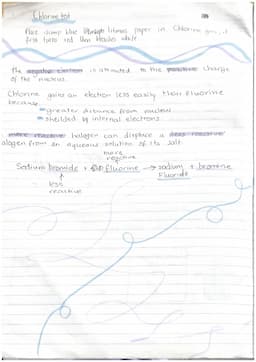 Chlorine test
Place damp blue litmus paper in Chlorine gas, it
first turns red then bleaches white
The negative electron is attracted to the positive charge
of the nucleus.
Chlorine gains an electron less easily than Fluorine
because
greater distance from nucleus
shielded by internal electrons
more reactive halogen can displace a less reactive
alogen from an aqueous solution of its salt
more
reactive
Sodium bromide + fluorine → sodium + bromine
Fluoride
↑
less
reactive